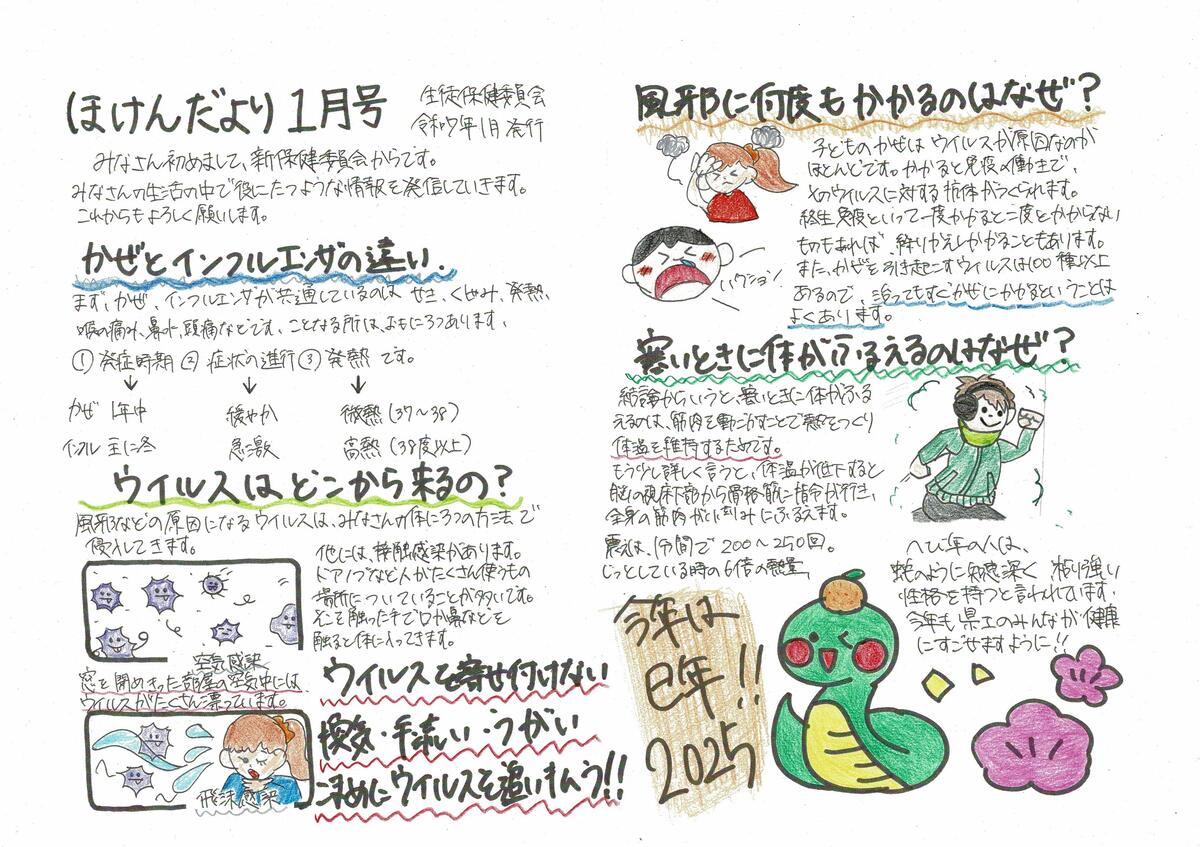 ほけんだより1月号
生徒保健委員会
令和7年1月発行
みなさん初めまして、新保健委員会からです。
みなさんの生活の中で役にたつような情報を発信していきます。
これからもよろしく願いします。
かぜとインフルエンザの違い.
まず、かぜ、インフルエンザが共通しているのは せき、くしゃみ、発熱、
喉の痛み、鼻水、頭痛などです、ことなる所は、おもに3つあります、
① 発症時期 ② 症状の進行 ③ 発熱 です。
↓ ↓ ↓
かぜ 1年中 緩やか 微熱(37〜38)
インフル 主に冬 急激 高熱(38度以上)
ウイルスはどこから来るの?
風邪などの原因になるウイルスは、みなさんの体に3つの方法で
侵入してきます。
空気感染
窓を閉めきった部屋の空気中には
ウイルスがたくさん漂っています。
飛沫感染
他には、接触感染があります。
ドアノブなど人がたくさん使うもの
場所についていることが多いです。
そこを触った手で口か鼻などを
触ると体に入ってきます。
ウイルスを寄せ付けない
換気・手洗い・うがい
こまめにウイルスを追いはらう!!
風邪に何度もかかるのはなぜ?
子どものかぜは ウイルスが原因なのが
ほとんどです。かかると免疫の働きで、
そのウイルスに対する抗体がつくられます。
終生免疫といって一度かかると二度とかからない
ものもあれば、繰りかえしかかることもあります。
また、かぜを引き起こすウイルスは100種以上
あるので、治ってもすぐかぜにかかるということは
よくあります。
ハクション
寒いときに体がふるえるのはなぜ?
結論からいうと、寒いときに体がふる
えるのは、筋肉を動かすことで熱をつくり
体温を維持するためです。
もう少し詳しく言うと、体温が低下すると
脳の視床下部から骨格筋に指令が行き、
全身の筋肉が小刻みにふるえます。
震えは、1分間で200〜250回。
じっとしている時の6倍の熱量、
今年は
巳年!!
2025
へび年の人は、
蛇のように知恵深く 粘り強い
性格を持つと言われています.
今年も県工のみんなが健康
にすごせますように!!